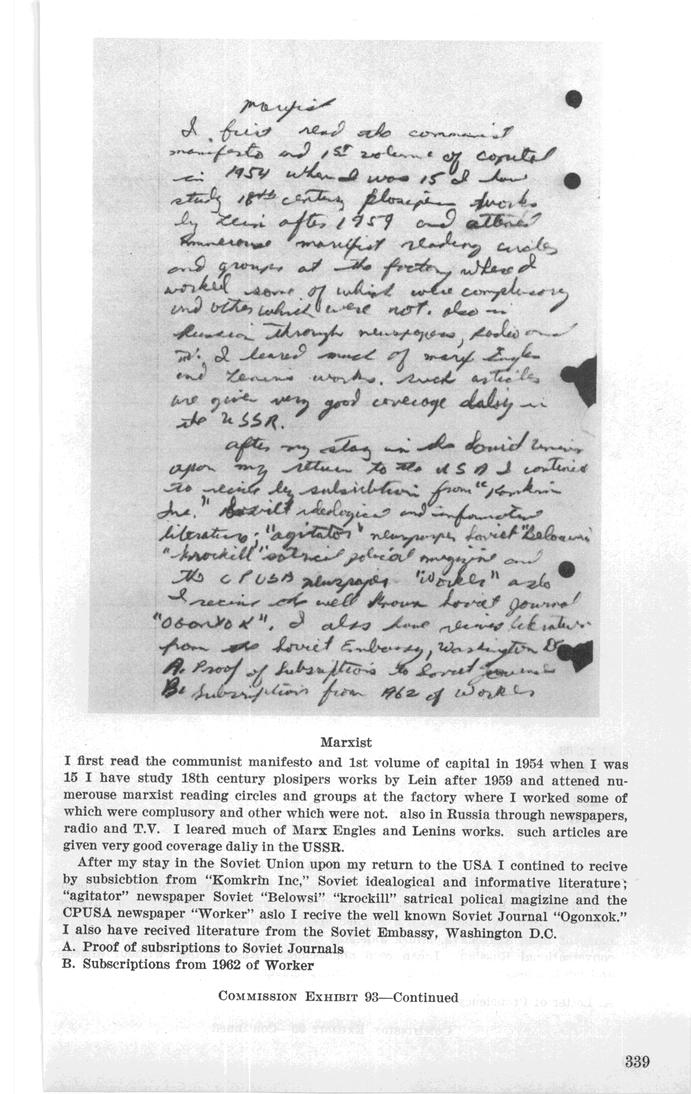 marxist
I first read the communist
manifesto and 1st volume of capital
in 1954 when I was 15 I have
study 18th century plosipers works
by Lein after 1959 and attened
numerouse marxist reading circles
and groups at the factory where I
worked some of which were complusory
and other which were not. also in
Russia through newspapers, radio and
T.V. I leared much of marx Engles
and Lenins works. such articles
are given very good coverage daliy in
the USSR.
after my stay in the Soviet Union
upon my return to the USA I contined
to recive by subsicbtion from "Komkrin
Inc." Soviet ideological and informative
literature; "agitator" newspaper Soviet "Belowsi"
"krockill" satrical polical magizine and
the CPUSA newspaper "Worker" aslo
I recive the well known Soviet Journal
"OGONXOK". I also have recived literature
from the Soviet Embassy, Washington D.C.
A. Proof of subsriptions to Soviet Journals
B. Subscriptions from 1962 of Worker
Marxist
I first read the communist manifesto and 1st volume of capital in 1954 when I was
15 I have study 18th century plosipers works by Lein after 1959 and attened nu-
merouse marxist reading circles and groups at the factory where I worked some of
which were complusory and other which were not. also in Russia through newspapers,
radio and T.V. I leared much of Marx Engles and Lenins works. such articles are
given very good coverage daliy in the USSR.
After my stay in the Soviet Union upon my return to the USA I contined to recive
by subsicbtion from “Komkrin Inc,” Soviet idealogical and informative literature;
“agitator” newspaper Soviet “Belowsi” “krockill” satrical polical magizine and the
CPUSA newspaper “Worker” aslo I recive the well known Soviet Journal “Ogonxok.”
I also have recived literature from the Soviet Embassy, Washington D.C.
A. Proof of subsriptions to Soviet Journals
B. Subscriptions from 1962 of Worker
COMMISSION EXHIBIT 93—Continued
339